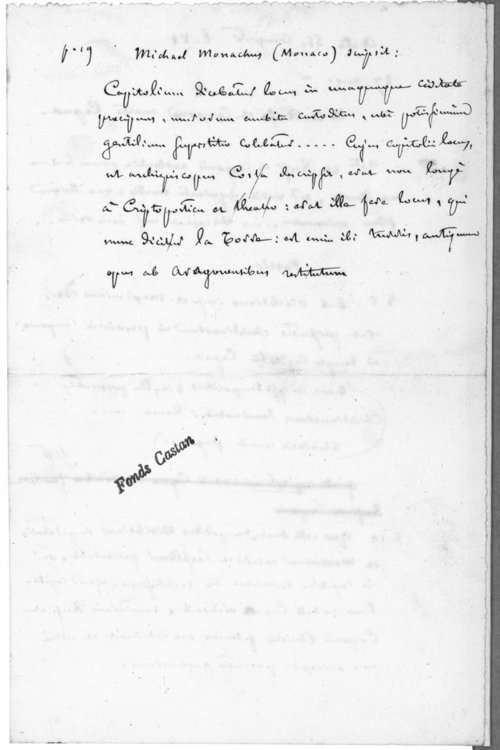 p. 19 Michael Monachus (Monaco) scripsit :
Capitolium dicebatur locus in unaquaque civitate
præcipuus, murorum ambitu custoditus, ubi potissimùm
gentilium superstitio colebatur..... Cujus capitolii locus,
ut archiepiscopus Costa descripsit, erat non longè
à Criptoportico et theatro : erat ille fere locus, qui
nunc dicitur la Torre : est enim ibi turris, antiquum
opus ab Aragonensibus restitutum
Fonds Castan